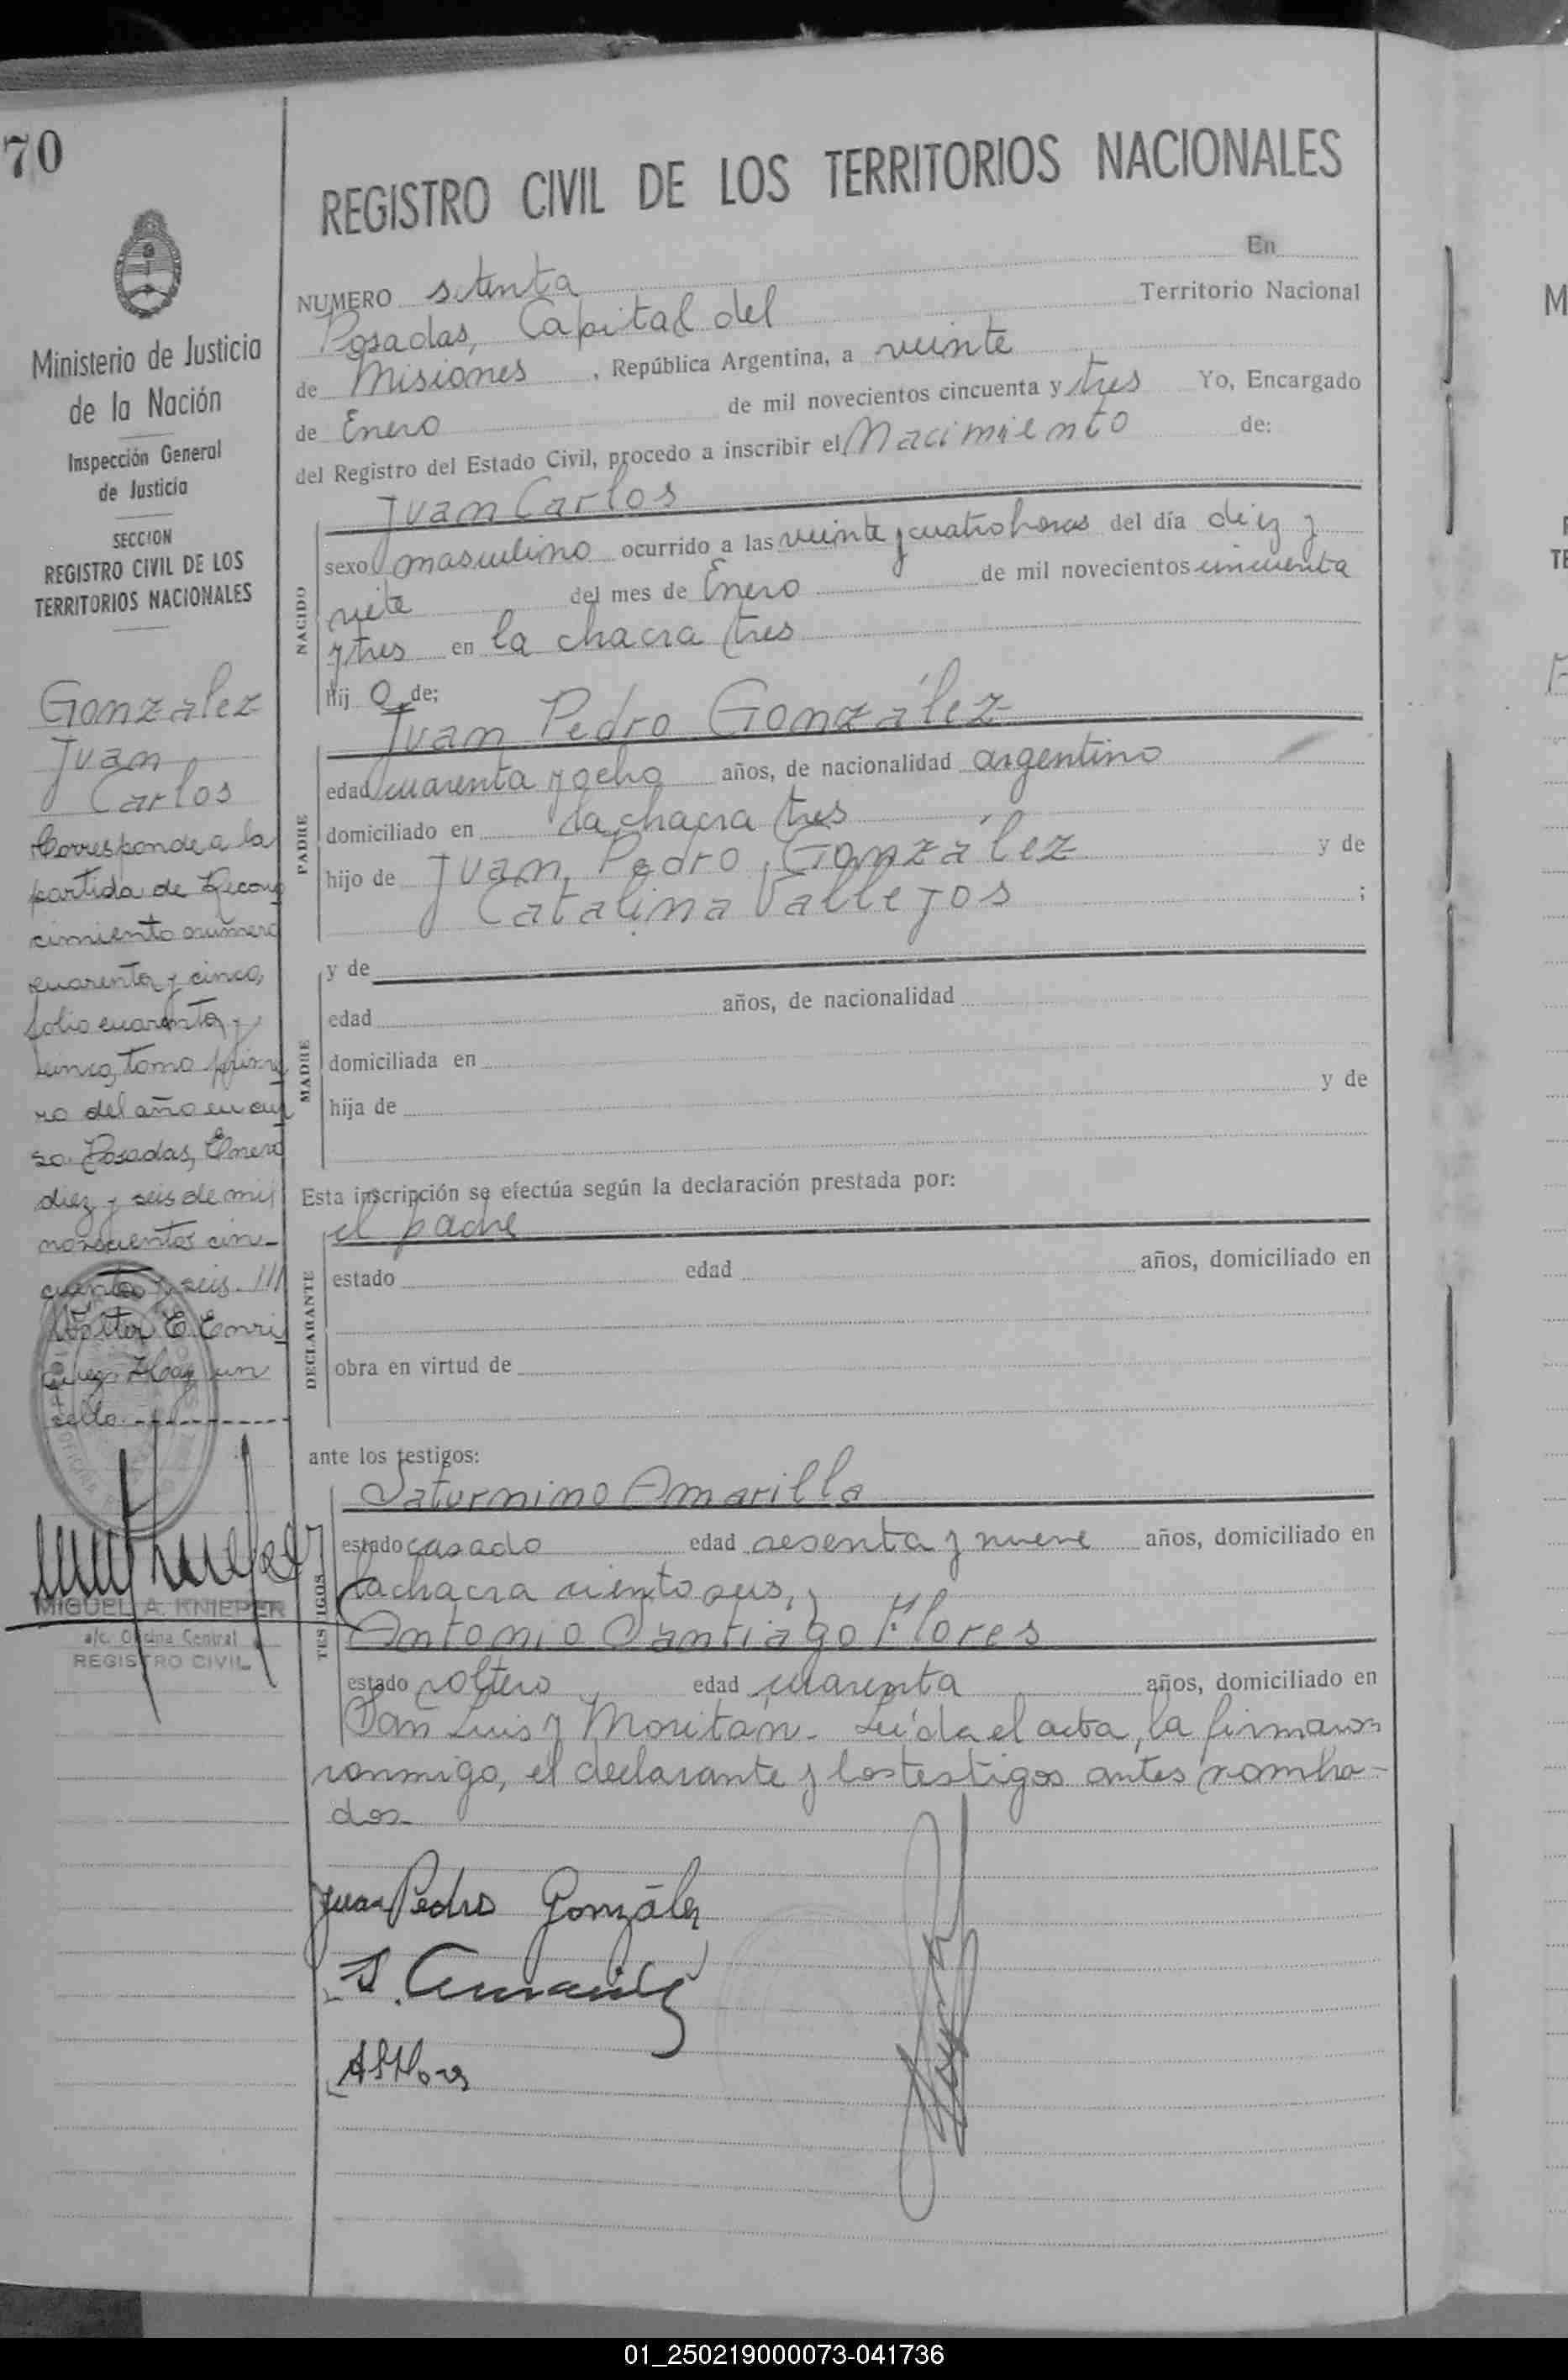 70
Ministerio de Justicia
de la Nación
Inspección General
de Justicia
SECCION
REGISTRO CIVIL DE LOS
TERRITORIOS NACIONALES
Gonzalez
Juan
Carlos
Corresponde a la
partida de Recono
cimiento número
cuarenta y cinco,
folio cuarenta y
cinco, tomo prime
ro del año en cur
so. Posadas, Enero
diez y seis de mil
novecientos cin-
cuenta y seis. ///
Walter E. Enri
quez. Hay un
sello.
MIGUEL A. KNIEPER
a/c. Oficina Central
REGISTRO CIVIL
REGISTRO CIVIL DE LOS TERRITORIOS NACIONALES
NUMERO setenta En
Posadas, Capital del Territorio Nacional
de Misiones, República Argentina, a veinte
de Enero de mil novecientos cincuenta y tres Yo, Encargado
del Registro del Estado Civil, procedo a inscribir el Nacimiento de:
NACIDO
Juan Carlos
sexo masculino ocurrido a las veinte y cuatro horas del día diez y
siete del mes de Enero de mil novecientos cincuenta
y tres en la chacra tres
hij o de:
PADRE
Juan Pedro González
edad cuarenta y ocho años, de nacionalidad argentino
domiciliado en la chacra tres
hijo de Juan Pedro González y de
Catalina Vallejos ;
MADRE
y de
edad años, de nacionalidad
domiciliada en
hija de y de
Esta inscripción se efectúa según la declaración prestada por:
DECLARANTE
el padre
estado edad años, domiciliado en
obra en virtud de
ante los testigos:
TESTIGOS
Saturnino Amarilla
estado casado edad sesenta y nueve años, domiciliado en
la chacra ciento seis, y
Antonio Santiago Flores
estado soltero edad cuarenta años, domiciliado en
San Luis y Moritán. Leída el acta, la firman
conmigo, el declarante y los testigos antes nombra-
dos.
Juan Pedro González
S. Amarilla
ASFlores
01_250219000073-041736